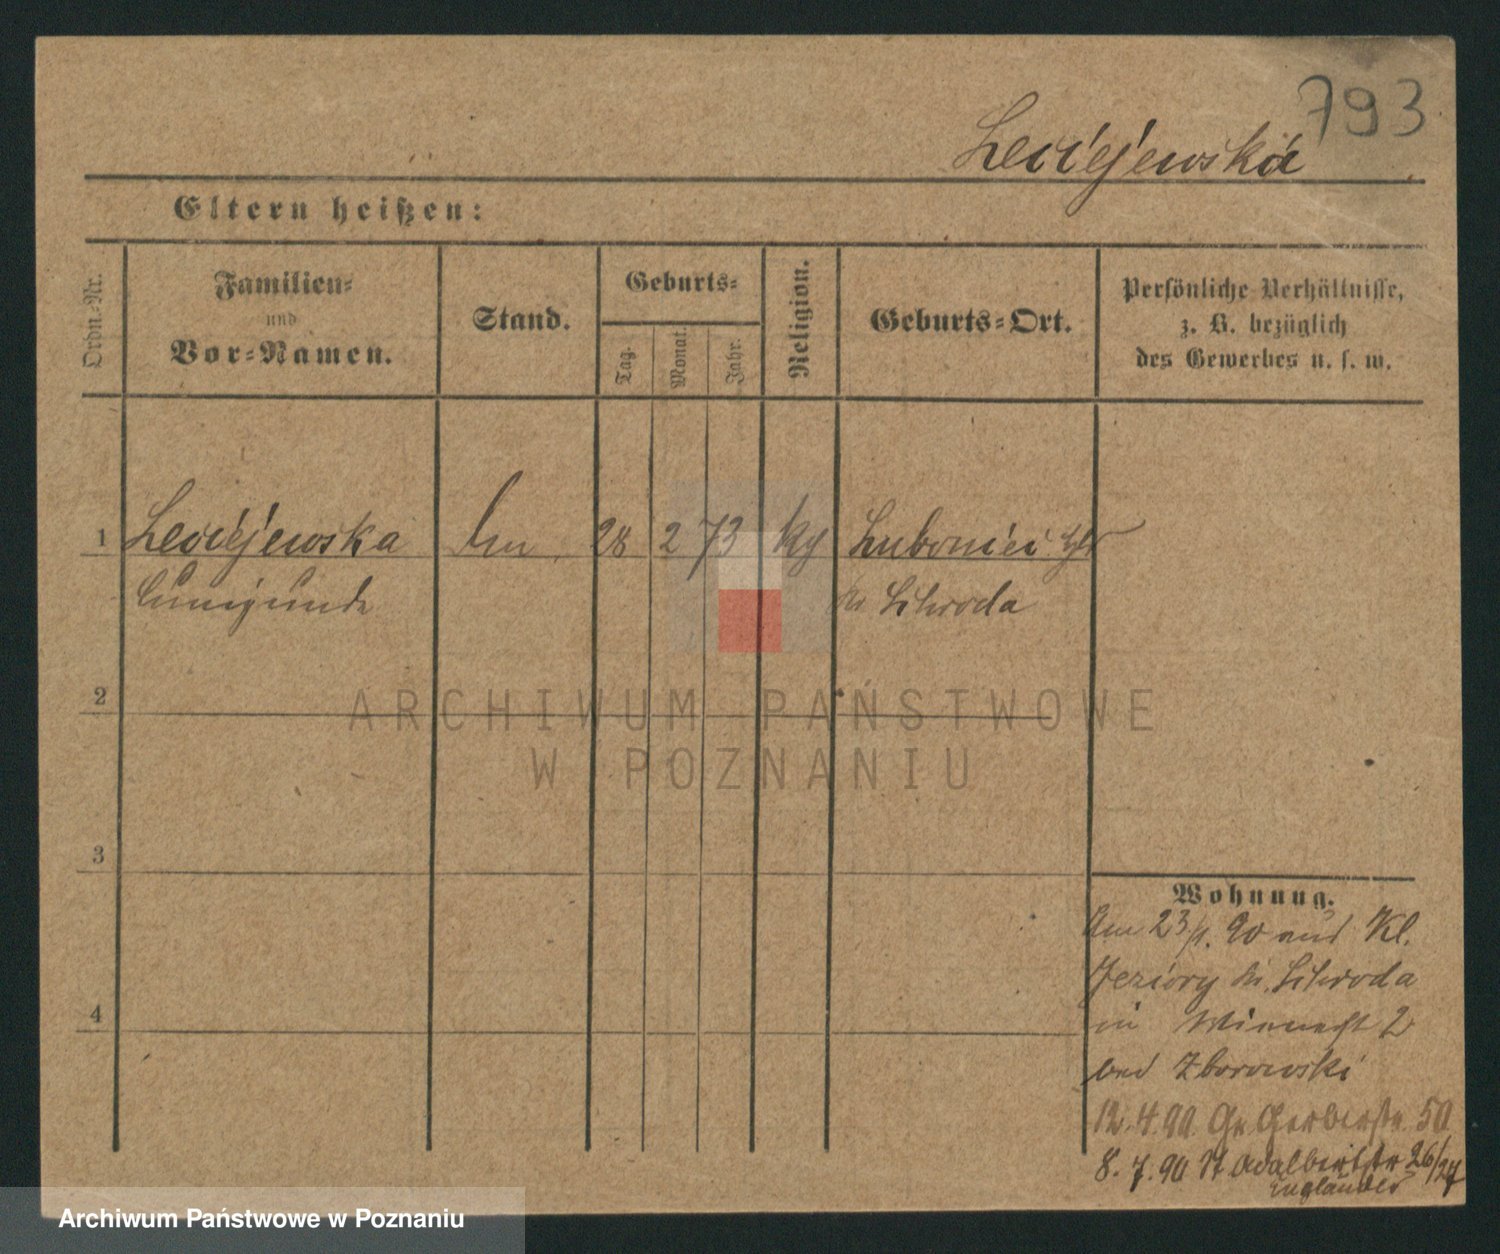 793
Leciejewska
Eltern heißen:
Ordn.-Nr.
Familien-
und
Vor-Namen.
Stand.
Geburts-
Tag.
Monat.
Jahr.
Religion.
Geburts-Ort.
Persönliche Verhältnisse,
z. B. bezüglich
des Gewerbes u. s. w.
1 Leciejewska 28 2 73
Cunigunde Schroda
2
3
4
ARCHIWUM PAŃSTWOWE
W POZNANIU
Wohnung.
Am 23/1. 90 aus Kl.
Jeziory Kr. Schroda
in 2
bei Zborowski
12.4.90 Gr. Gerberstr. 50
8.7.90 St. Adalbertstr 26/27
Engländer
Archiwum Państwowe w Poznaniu